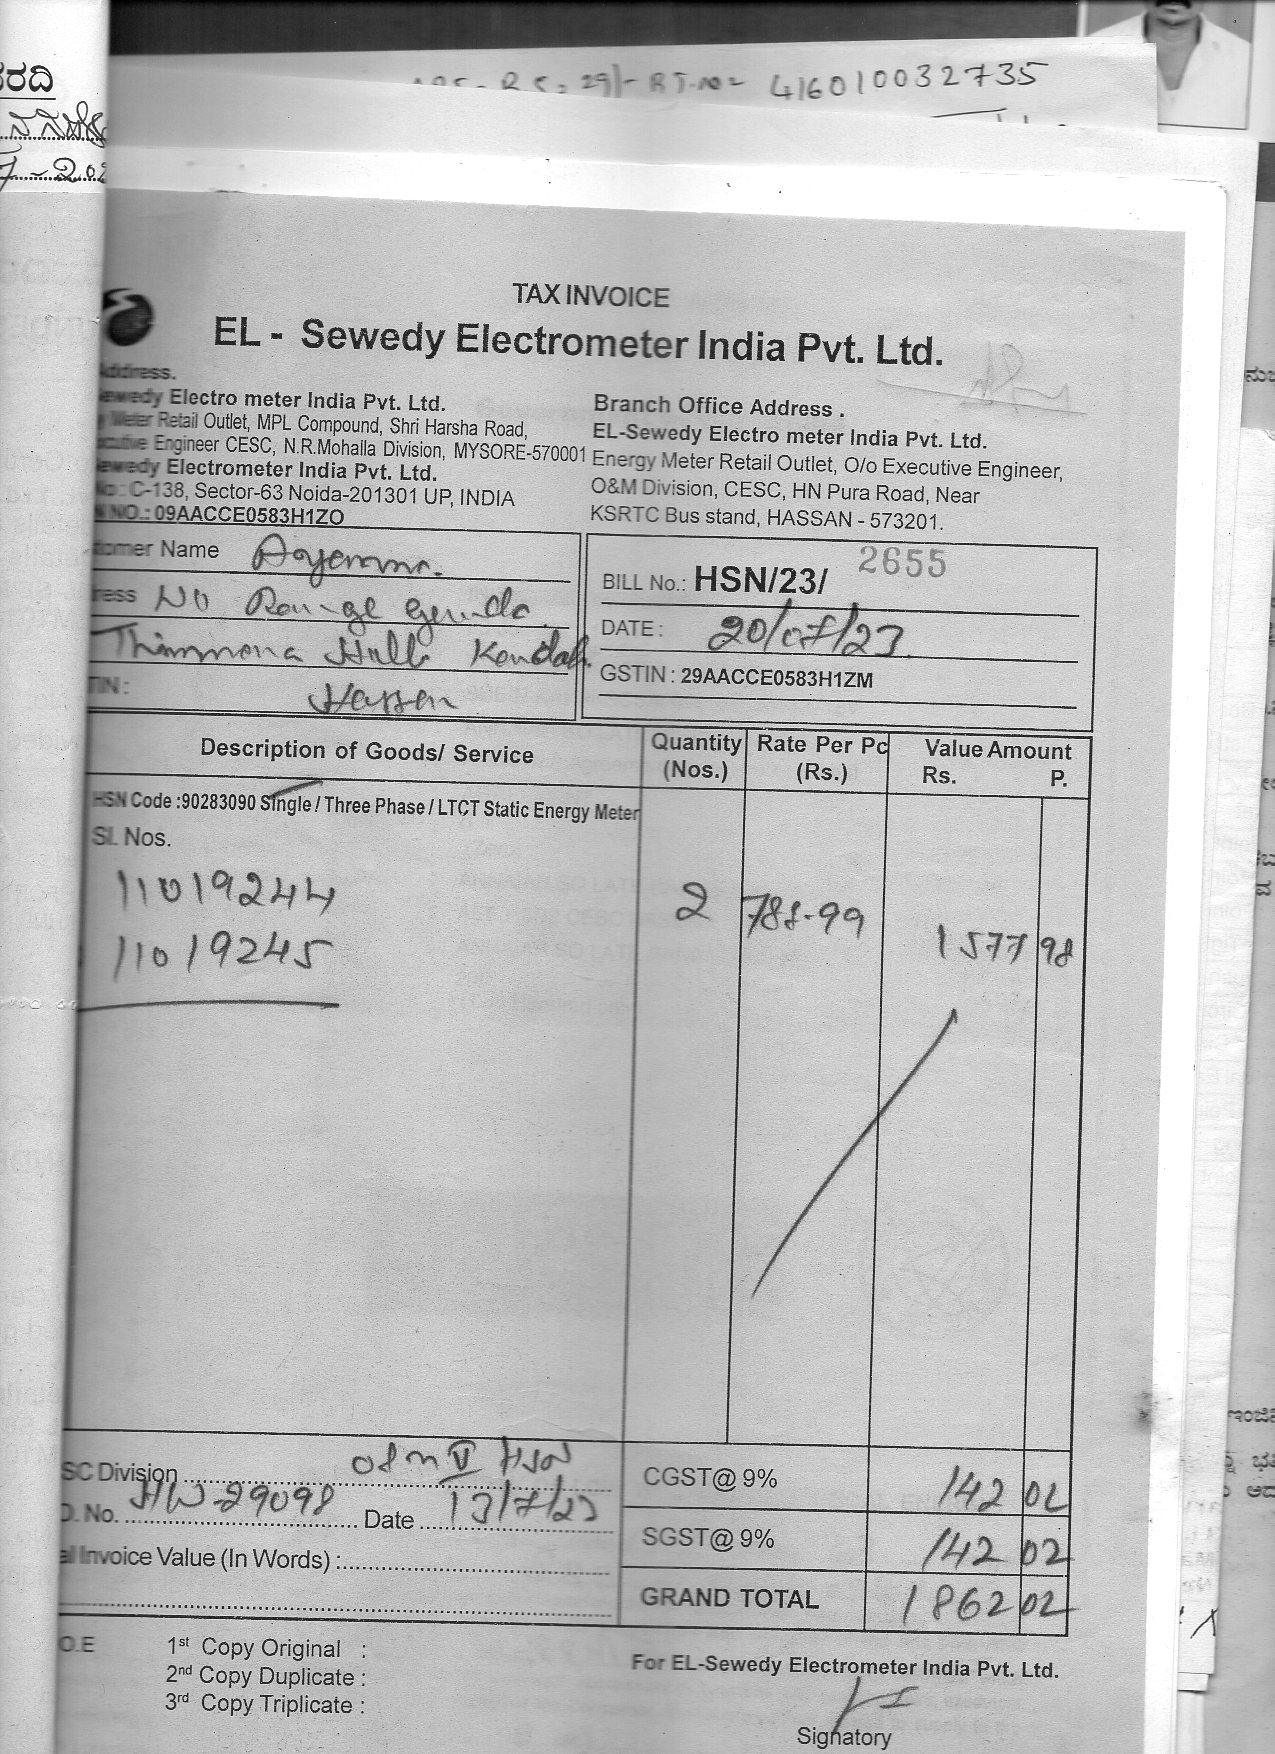 ರದಿ
RS. 29/- RT.no 416010032735
TAX INVOICE
EL - Sewedy Electrometer India Pvt. Ltd.
Address.
Sewedy Electro meter India Pvt. Ltd.
Meter Retail Outlet, MPL Compound, Shri Harsha Road,
Engineer CESC, N.R.Mohalla Division, MYSORE-570001
Sewedy Electrometer India Pvt. Ltd.
C-138, Sector-63 Noida-201301 UP, INDIA
NO.: 09AACCE0583H1ZO
Branch Office Address .
EL-Sewedy Electro meter India Pvt. Ltd.
Energy Meter Retail Outlet, O/o Executive Engineer,
O&M Division, CESC, HN Pura Road, Near
KSRTC Bus stand, HASSAN - 573201.
tomer Name
ress
Thimmona Halli
TIN : Hassan
BILL No.: HSN/23/ 2655
DATE : 20/07/23
GSTIN : 29AACCE0583H1ZM
Description of Goods/ Service Quantity (Nos.) Rate Per Pc (Rs.) Value Amount Rs. P.
HSN Code :90283090 Single / Three Phase / LTCT Static Energy Meter
Sl. Nos.
11019244 2 788-99 1577 98
11019245
SC Division HSN
O. No. HW-29098 Date 13/7/23
al Invoice Value (In Words) :
CGST@ 9% 142 02
SGST@ 9% 142 02
GRAND TOTAL 1862 02
O.E 1st Copy Original :
2nd Copy Duplicate :
3rd Copy Triplicate :
For EL-Sewedy Electrometer India Pvt. Ltd.
Signatory